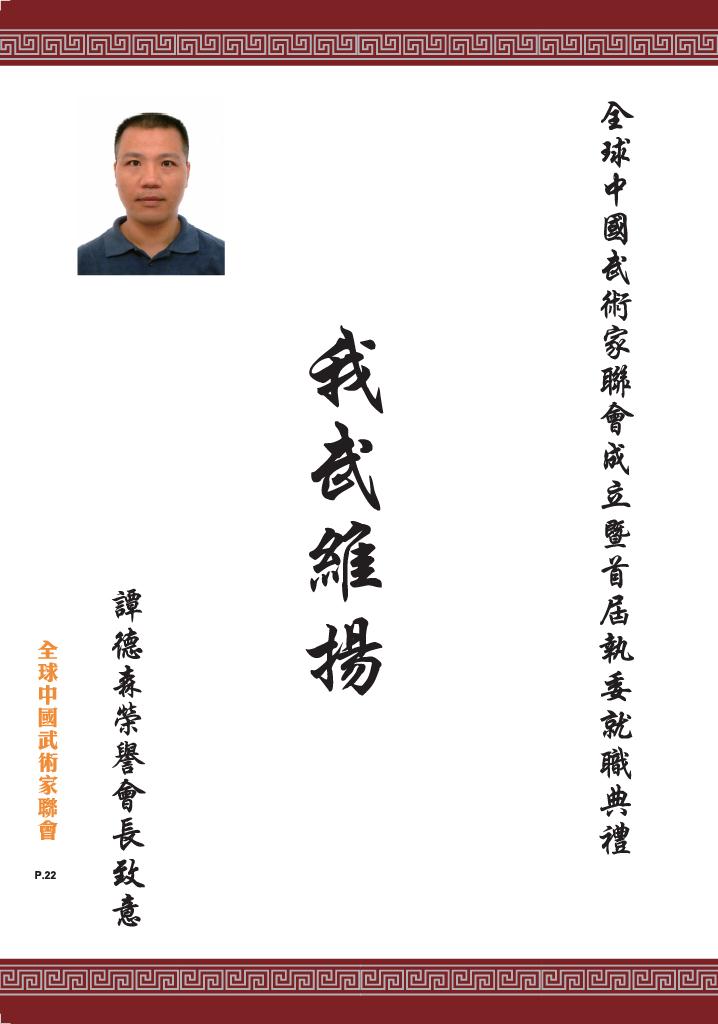 全球中國武術家聯會成立暨首屆執委就職典禮
我武維揚
譚德森榮譽會長致意
全球中國武術家聯會
P.22